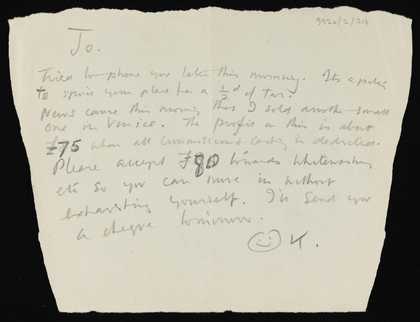 9920/2/24
Jo.
Tried to phone you later this morning. Its a pity
to spoil your place for a ½d of Tar.
News came this morning that I sold another small
one in Venice. The profit on this is about
£75 when all commissions casting is deducted.
Please accept £80 towards whitewashing
etc so you can move in without
exhausting yourself. I'll send you
a cheque tomorrow.
K.